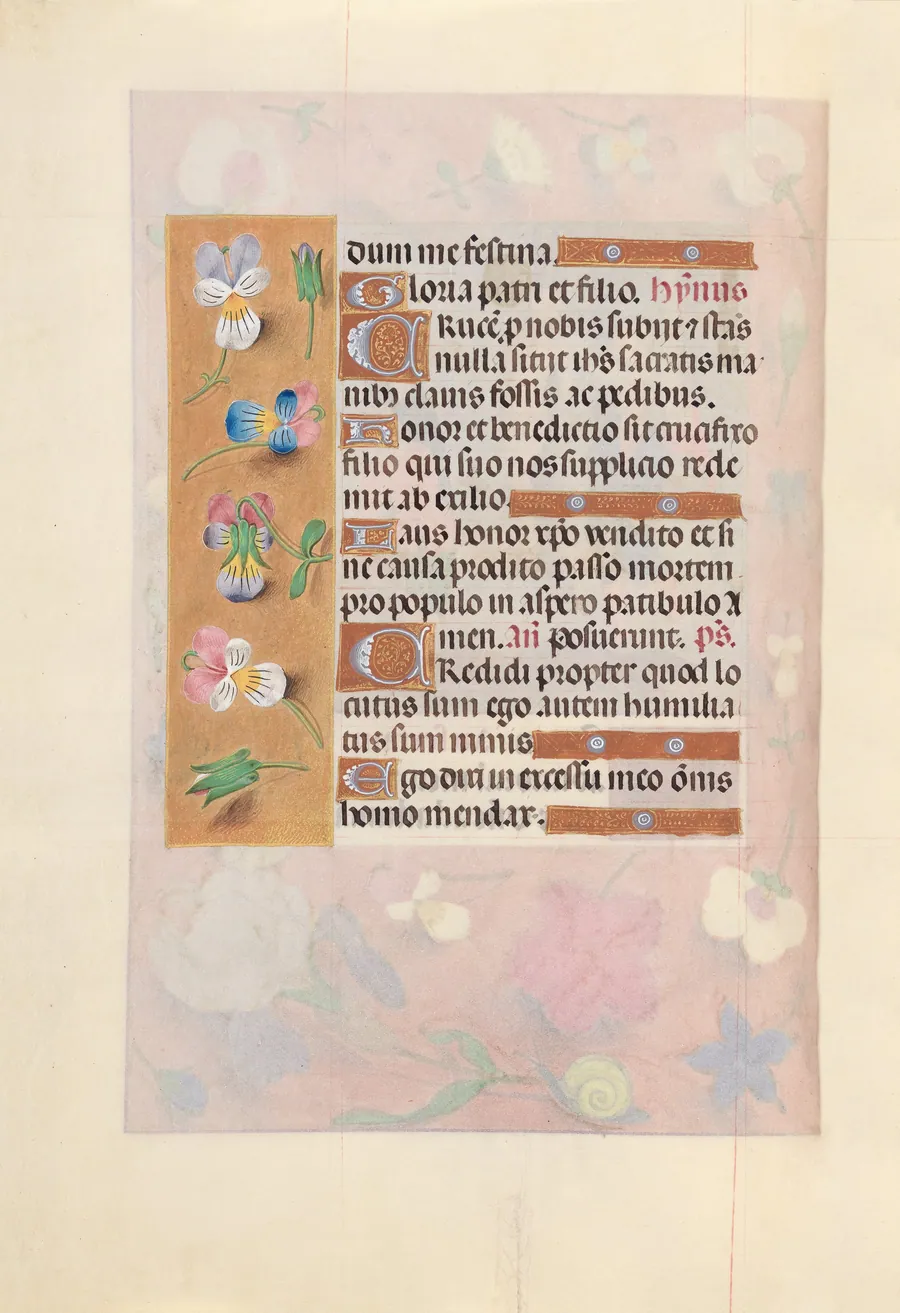 dum me festina
Gloria patri et filio. hỹnus
CRucẽ p nobis subijt ⁊ stãs
nulla sitijt ihs̃ sacratis ma
nibꝫ clauis fossis ac pedibus.
Honor et benedictio sit crucifixo
filio qui suo nos supplicio rede
mit ab exilio.
Laus honor xp̃o vendito et si
ne causa prodito passo mortem
pro populo in aspero patibulo A
men. añ posuerunt. p̃s.
CRedidi propter quod lo
cutus sum ego autem humilia
tus sum nimis
Ego dixi in excessu meo õnis
homo mendax.